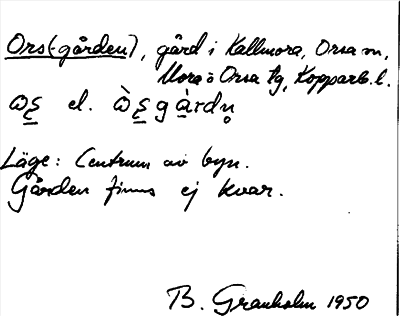 Ors(-gården), gård i Kallmora, Orsa sn,
Mora o Orsa tg, Kopparb. l.
el.
Läge: Centrum av byn.
Gården finns ej kvar.
B. Granholm 1950